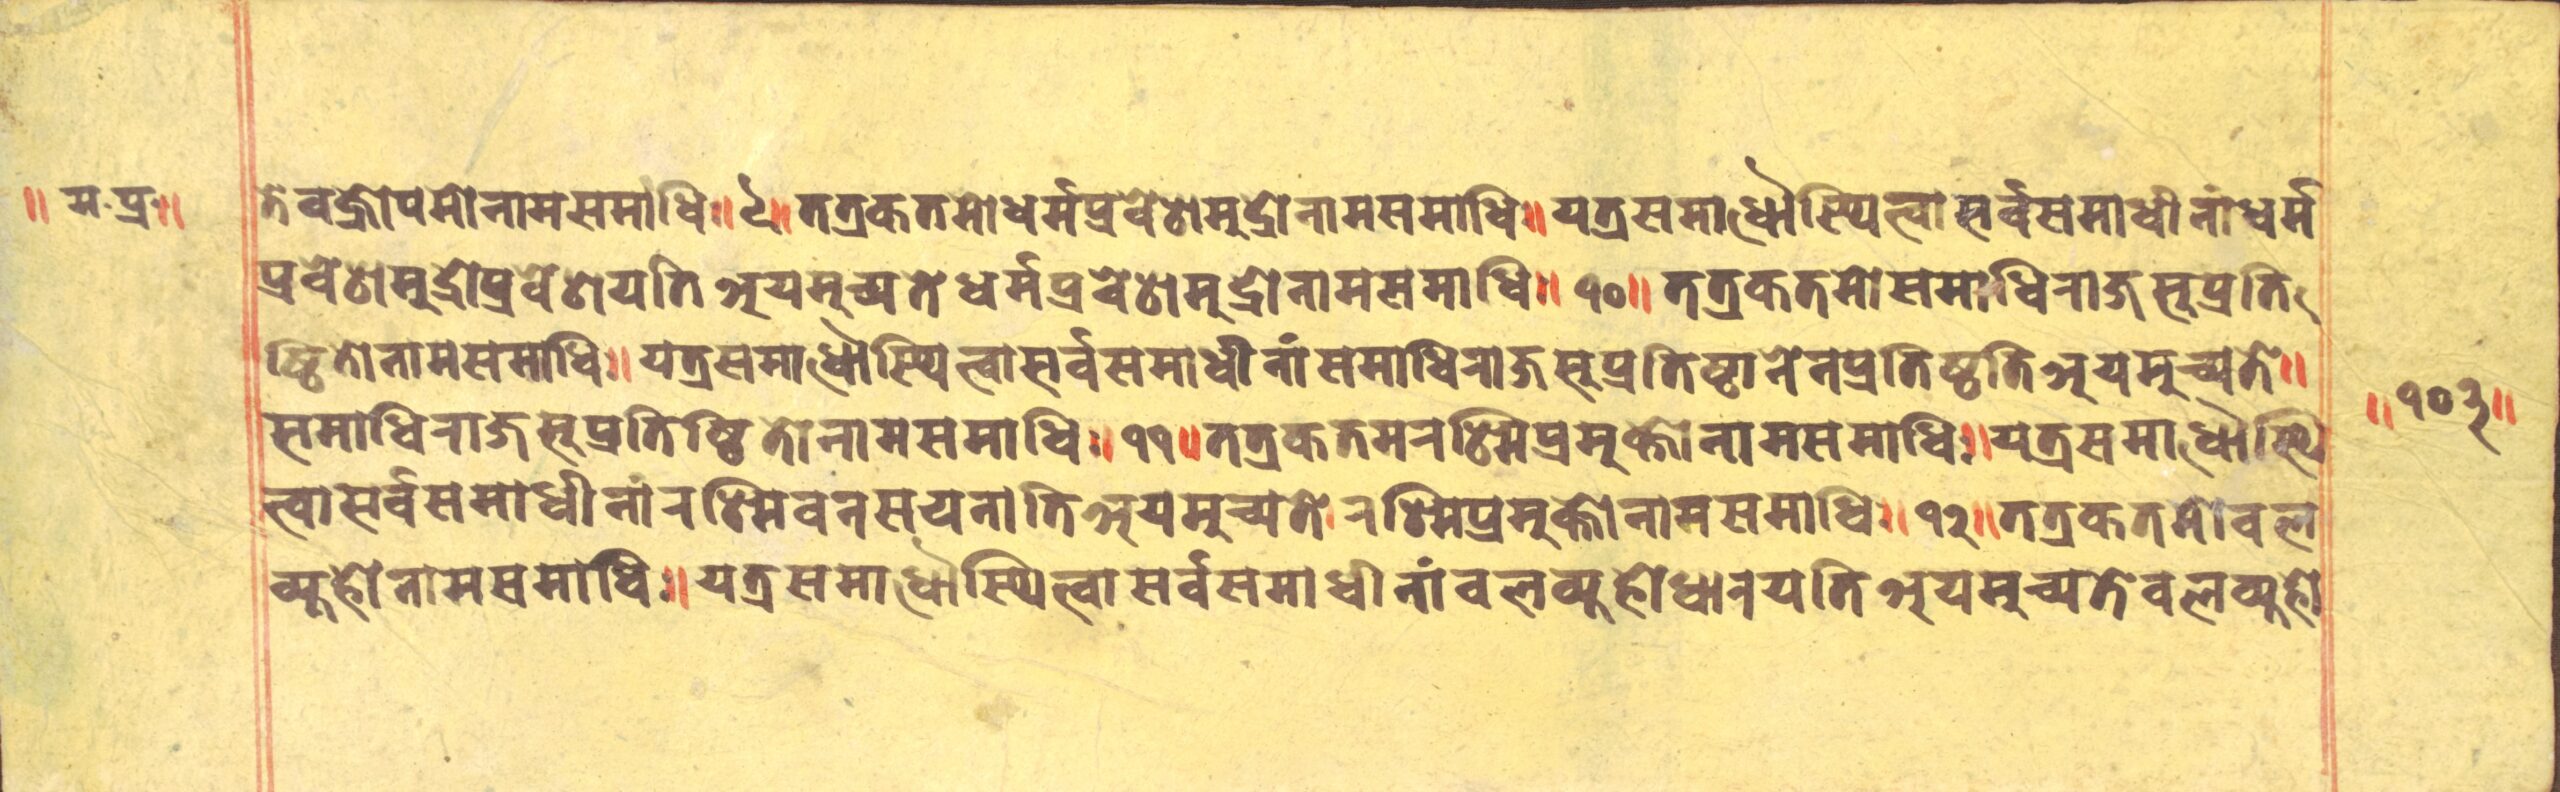 ॥ म.प्र.॥
ते वज्रोपमो नाम समाधिः॥ ९॥ तत्र कतमो धर्मप्रवेशमुद्रो नाम समाधिः॥ यत्र समाधौ स्थित्वा सर्वसमाधीनां धर्म
प्रवेशमुद्रो प्रवेशयति अयमुच्यते धर्मप्रवेशमुद्रो नाम समाधिः॥ १०॥ तत्र कतमो समाधिराजसुप्रति
ष्ठितो नाम समाधिः॥ यत्र समाधौ स्थित्वा सर्वसमाधीनां समाधिराजसुप्रतिष्ठानेन प्रतिष्ठति अयमुच्यते॥
समाधिराजसुप्रतिष्ठितो नाम समाधिः॥ ११॥ तत्र कतम रश्मिप्रमुक्तो नाम समाधिः॥ यत्र समाधौ स्थि
त्वा सर्वसमाधीनां रश्मिवनसयनाति अयमुच्यते रश्मिप्रमुक्तो नाम समाधिः॥ १२॥ तत्र कतमो वल
व्यूहो नाम समाधिः॥ यत्र समाधौ स्थित्वा सर्वसमाधीनां वलव्यूहो धारयति अयमुच्यते वलव्यूहो
॥१०३॥